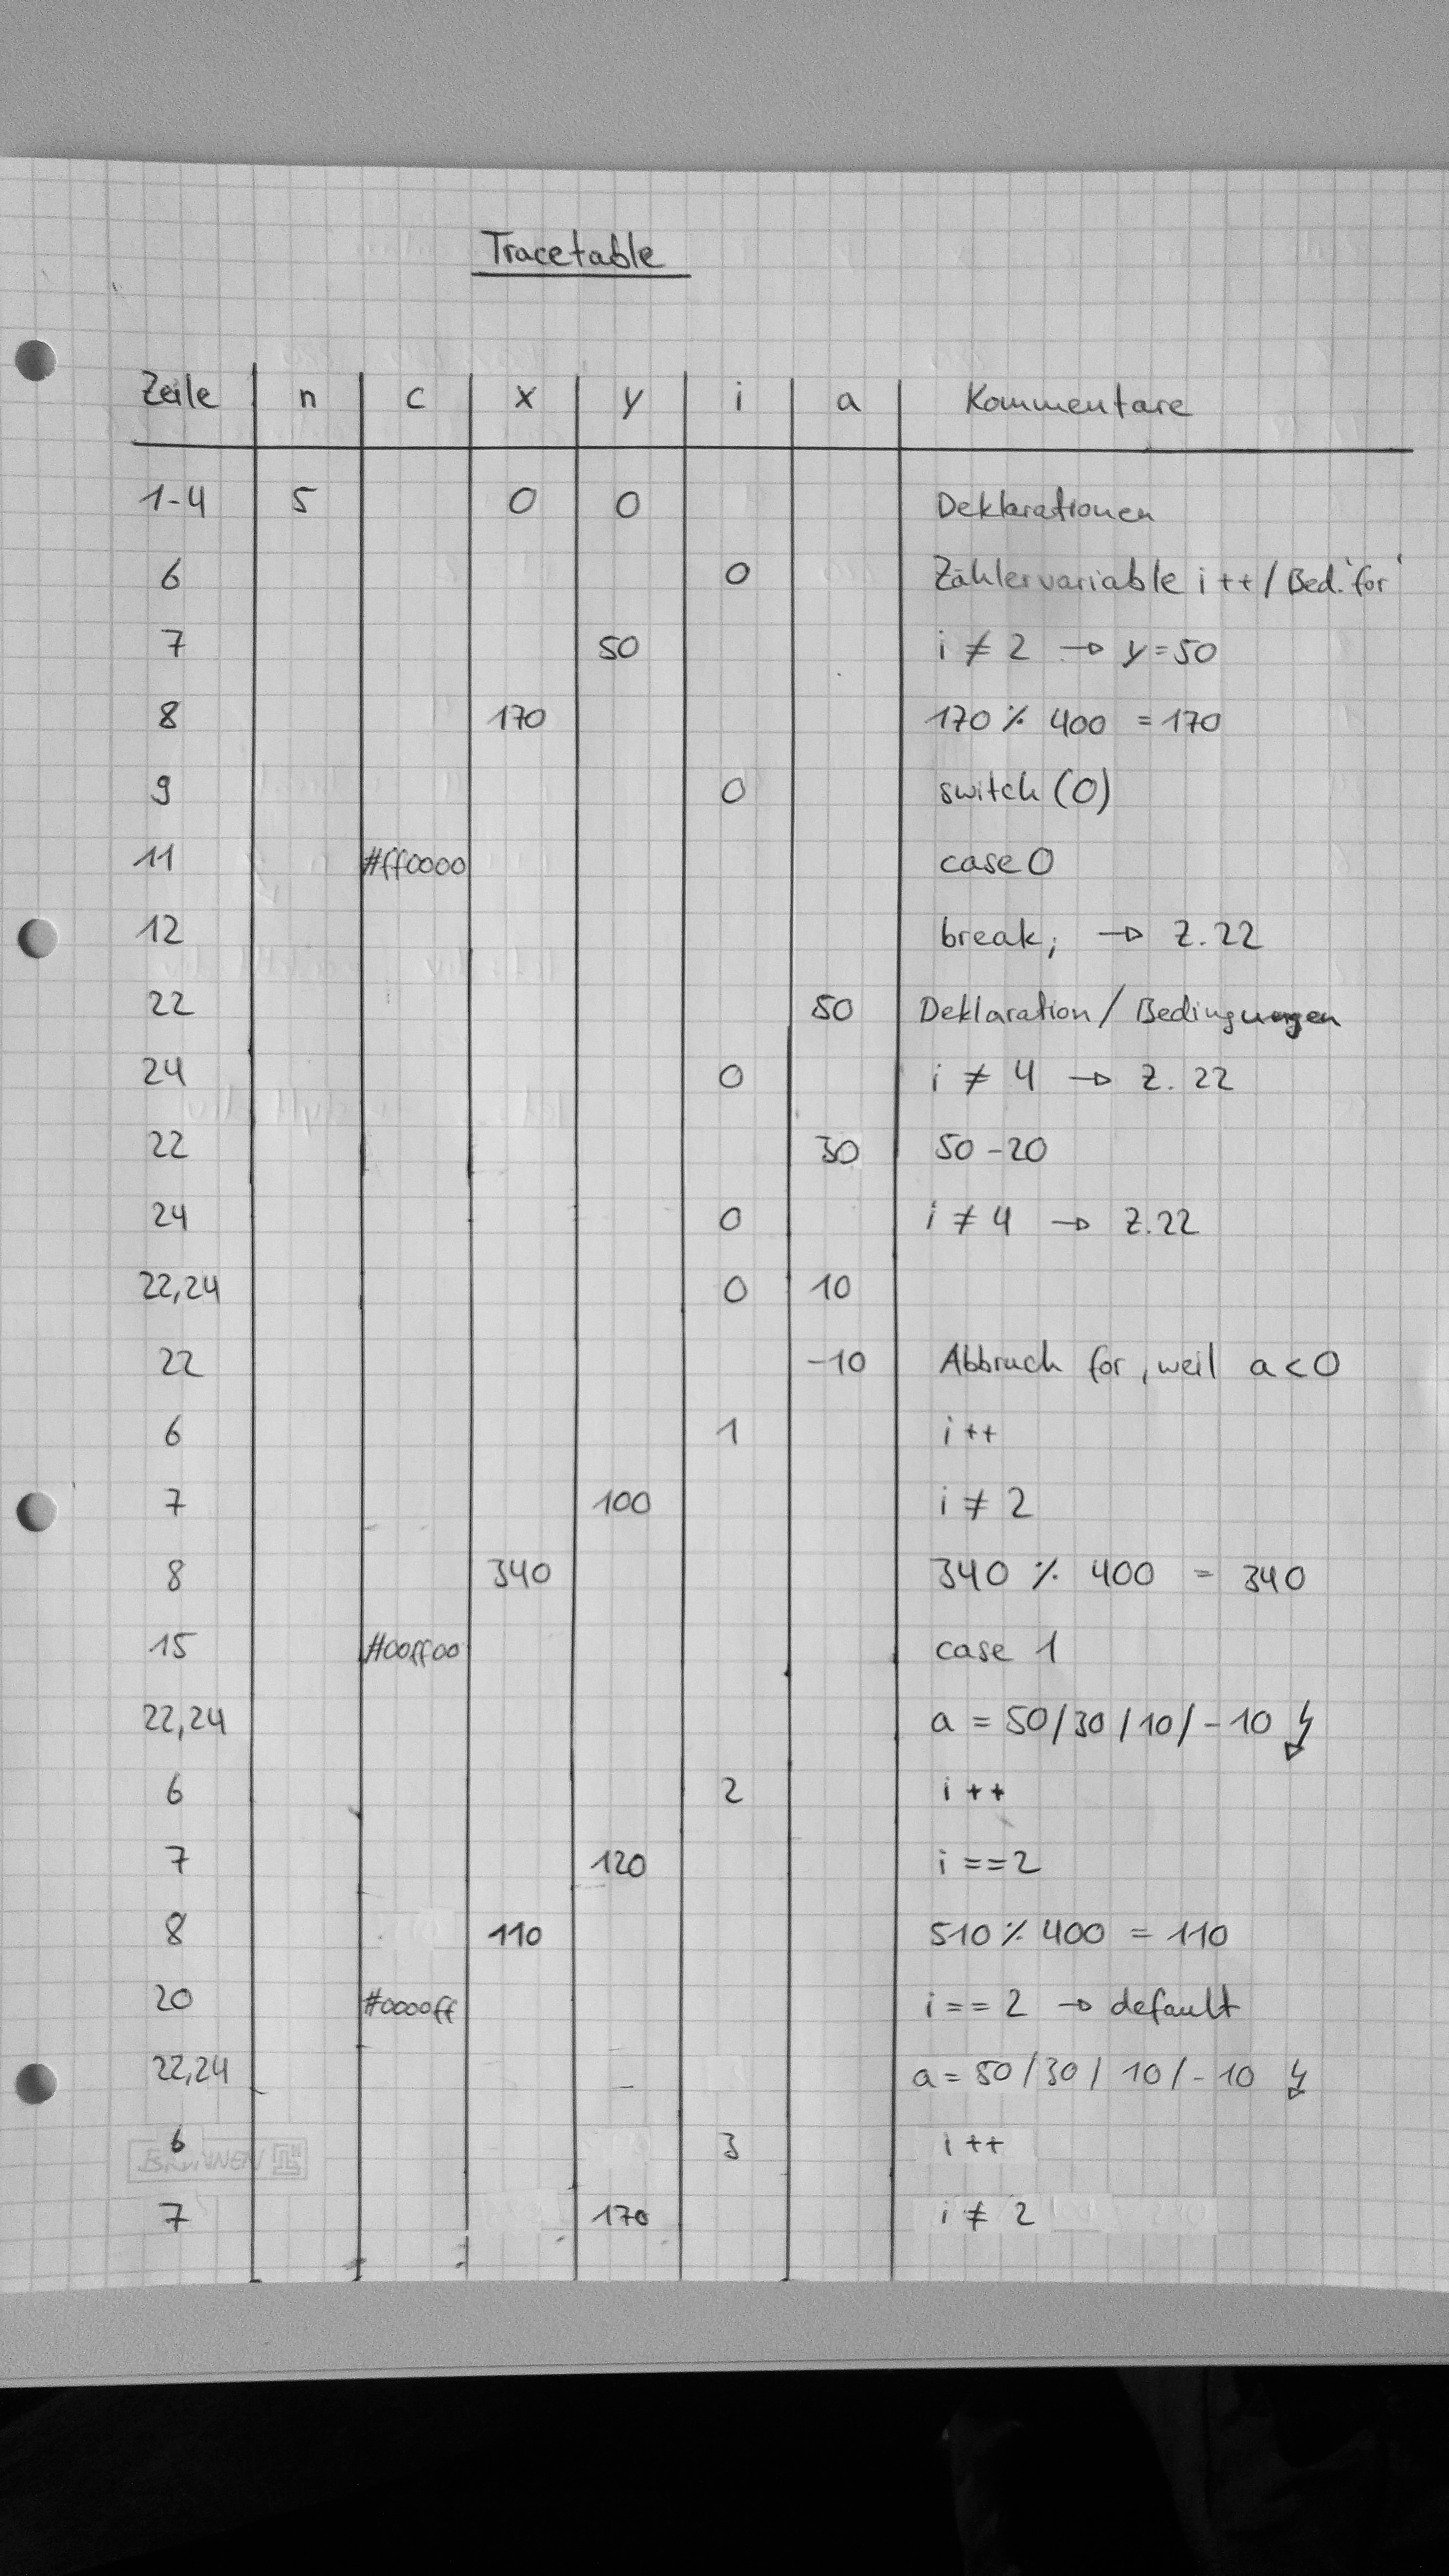 Tracetable
Zeile n c x y i a Kommentare
1-4 5 0 0 Deklarationen
6 0 Zählervariable i++ / Bed. 'for'
7 50 i ≠ 2 → y=50
8 170 170 % 400 = 170
9 0 switch (0)
11 #ff0000 case 0
12 break; → Z.22
22 50 Deklaration / Bedingungen
24 0 i ≠ 4 → Z. 22
22 30 50-20
24 0 i ≠ 4 → Z.22
22,24 0 10
22 -10 Abbruch for, weil a<0
6 1 i++
7 100 i ≠ 2
8 340 340 % 400 = 340
15 #00ff00 case 1
22,24 a = 50/30/10/-10
6 2 i++
7 120 i==2
8 110 510 % 400 = 110
20 #0000ff i==2 → default
22,24 a = 50/30/10/-10
6 3 i++
BRUNNEN
7 170 i ≠ 2